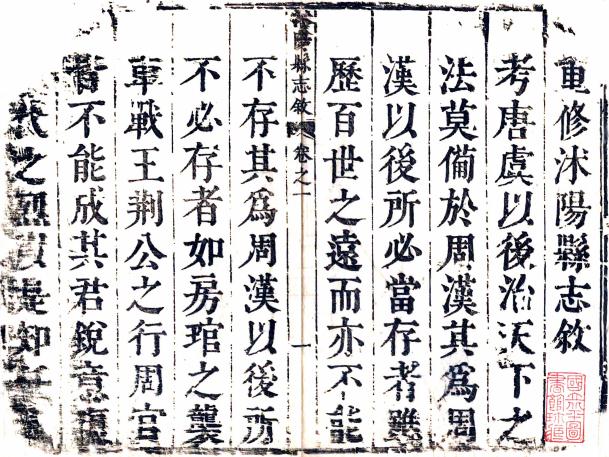 重修沭陽縣志敘
考唐虞以後治天下之
法莫備於周漢其為周
漢以後所必當存者雖
歷百世之遠而亦不能
縣志敘 卷之一 一
不存其為周漢以後所
不必存者如房琯之襲
車戰王荆公之行周官
皆不能成其君銳意
之烈以是知